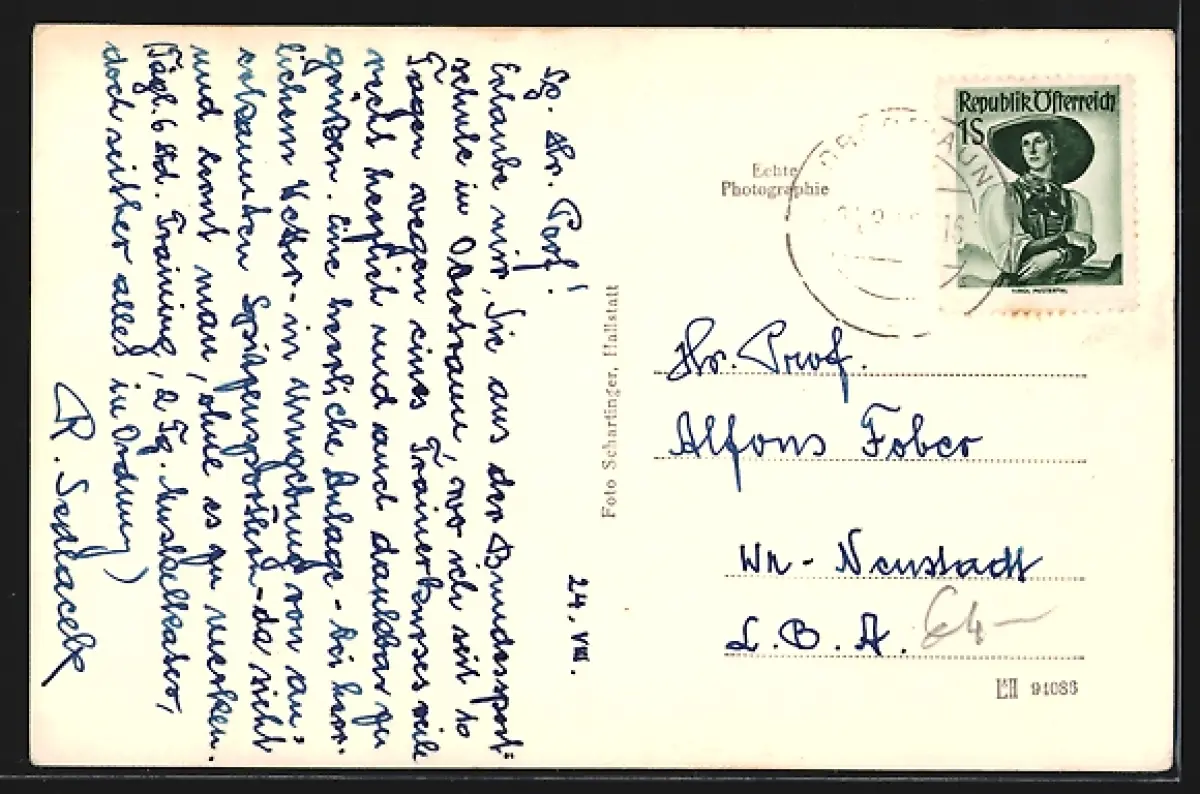 24. VIII.
Sg. Hr. Prof!
Erlaube mir, Sie aus der Bundessport=
schule in Obertraun, wo ich seit 10
Tagen wegen eines Trainerkurses weile
recht herzlich und auch dankbar zu
grüßen. Eine herrliche Anlage - bei herr-
lichem Wetter - in Umgebung von an=
erkannten Spitzensportlern - da sieht
und lernt man, ohne es zu merken.
(Tägl. 6 Std. Training, 2 Tg. Muskelkater,
doch seither alles in Ordnung)
R. Sedlacek
Foto Schartinger, Hallstatt
Echte
Photographie
Republik Österreich
1S
OBERTRAUN
Hr. Prof.
Alfons Fober
Wr - Neustadt
L. B. A.
94086